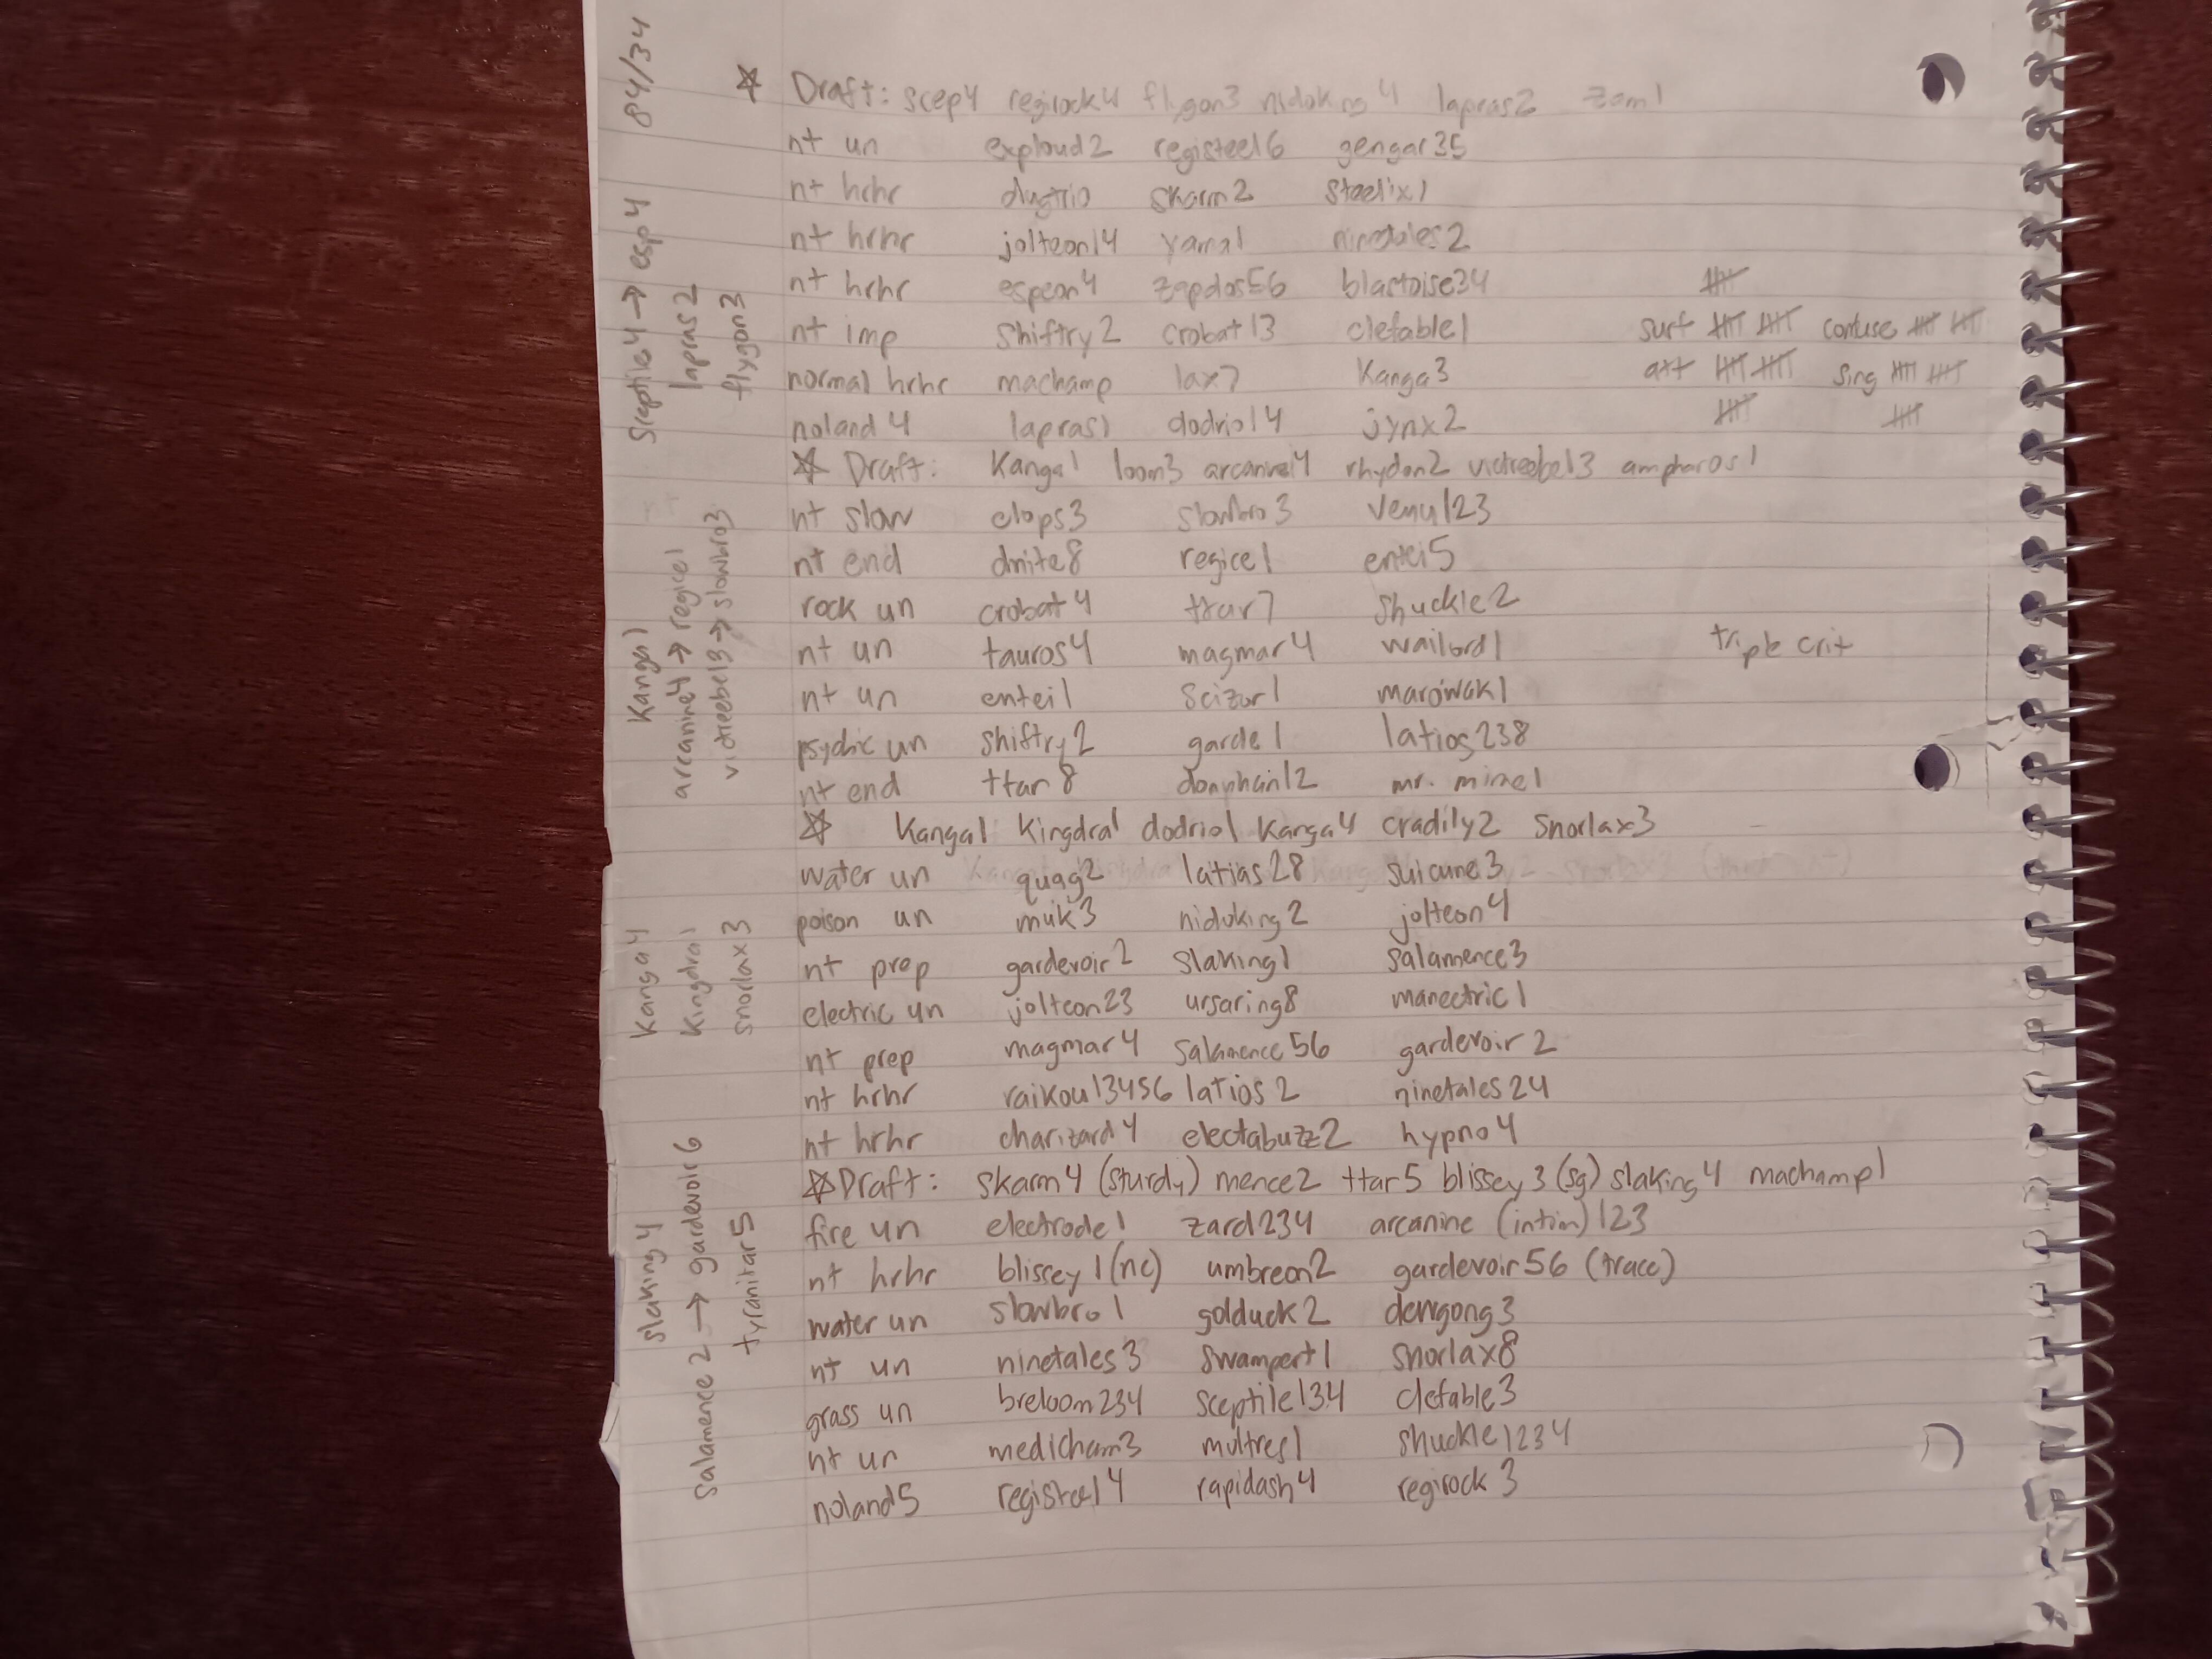 84/34
☆ Draft: scep4 regirock4 flygon3 nidoking4 lapras2 zam1
nt un exploud2 registeel6 gengar35
nt hrhr dugtrio skarm2 steelix1
nt hrhr jolteon14 yanma1 ninetales2
nt hrhr espeon4 zapdos56 blastoise34
nt imp shiftry2 crobat13 clefable1 surf confuse
normal hrhr machamp lax7 kanga3 att sing
noland4 lapras1 dodrio14 jynx2
Sceptile4 → esp4
lapras2
flygon3
☆ Draft: Kanga1 loom3 arcanine14 rhydon2 victreebel3 ampharos1
nt slow clops3 slowbro3 venu123
nt end dnite8 regice1 entei5
rock un crobat4 ttar7 shuckle2
nt un tauros4 magmar4 wailord1 triple crit
nt un entei1 scizor1 marowak1
psychic un shiftry2 garde1 latios238
nt end ttar8 donphan12 mr. mime1
Kanga1
arcanine4 → regice1
victreebel3 → slowbro3
☆ Kanga1 Kingdra1 dodrio1 Kanga4 cradily2 Snorlax3
water un quag2 latias28 suicune3
poison un muk3 nidoking2 jolteon4
nt prep gardevoir2 slaking1 salamence3
electric un jolteon23 ursaring8 manectric1
nt prep magmar4 salamence56 gardevoir2
nt hrhr raikou13456 latios2 ninetales24
nt hrhr charizard4 electabuzz2 hypno4
Kanga4
Kingdra1
snorlax3
☆Draft: skarm4 (sturdy) mence2 ttar5 blissey3 (sg) slaking4 machamp1
fire un electrode1 zard234 arcanine (intim)123
nt hrhr blissey1(nc) umbreon2 gardevoir56 (trace)
water un slowbro1 golduck2 dewgong3
nt un ninetales3 swampert1 snorlax8
grass un breloom234 sceptile134 clefable3
nt un medicham3 moltres1 shuckle1234
noland5 registeel4 rapidash4 regirock3
slaking4
salamence2 → gardevoir6
tyranitar5